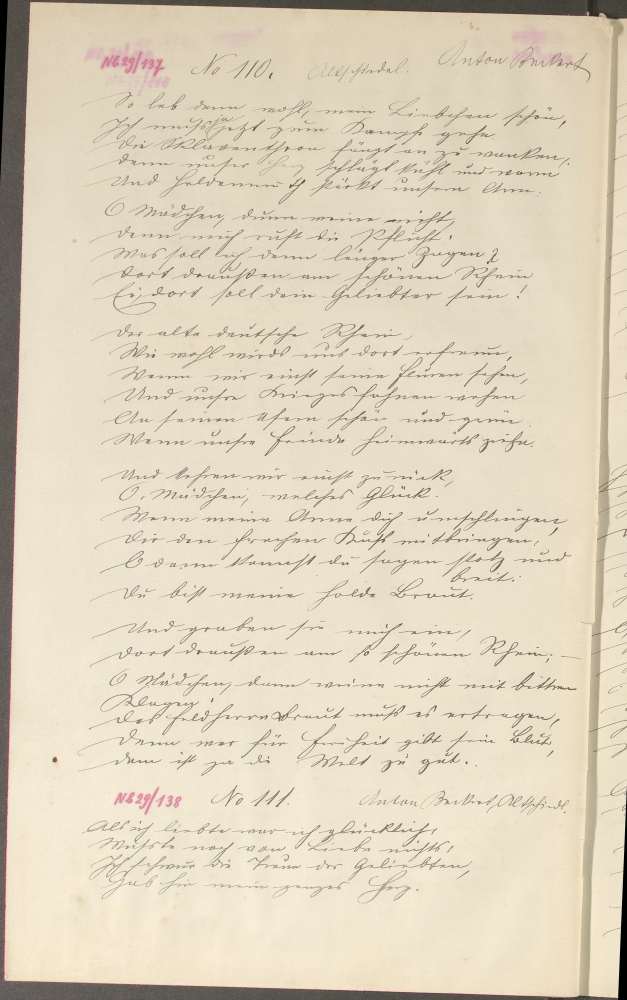 NG29/137 No 110. Altschiedel. Anton Beckert
So leb denn wohl, mein Liebchen schön,
Ich muß jetzt zum Kampfe gehn
Die Sklaventhron fängt an zu wanken,
Denn unser Herz schlägt kühl und warm
Und Heldenmuth stärkt unsern Arm.
O Mädchen, drum weine nicht,
Denn mich ruft die Pflicht.
Was soll ich denn länger zagen?
Dort draußen am schönen Rhein
Ei, dort soll dein Geliebter sein!
Der alte deutsche Rhein,
Wie wohl wirds uns dort erfreun,
Wenn wir einst seine Fluren sehen,
Und unsre Kriegesfahnen wehen
An seinen Ufern schön und grün
Wenn unsre Feinde heimwärts ziehn.
Und kehren wir einst zurück,
O, Mädchen, welches Glück.
Wenn meine Arme dich umschlingen,
Dir den Kuß mitbringen,
O dann kannst du sagen stolz und
breit:
Du bist meine holde Braut.
Und graben sie mich ein,
Dort draußen am so schönen Rhein; —
O Mädchen, dann weine nicht mit bittren
Klagen!
Des Feldherrn Braut muß es ertragen,
Denn wer für Freiheit gibt sein Blut,
dem ist ja die Welt zu gut.
NG29/138 No 111. Anton Beckert, Altschiedl.
Als ich liebte war ich glücklich,
Wußte noch von Liebe nichts,
Ich schwur die Treue der Geliebten,
Gab hin mein ganzes Herz.